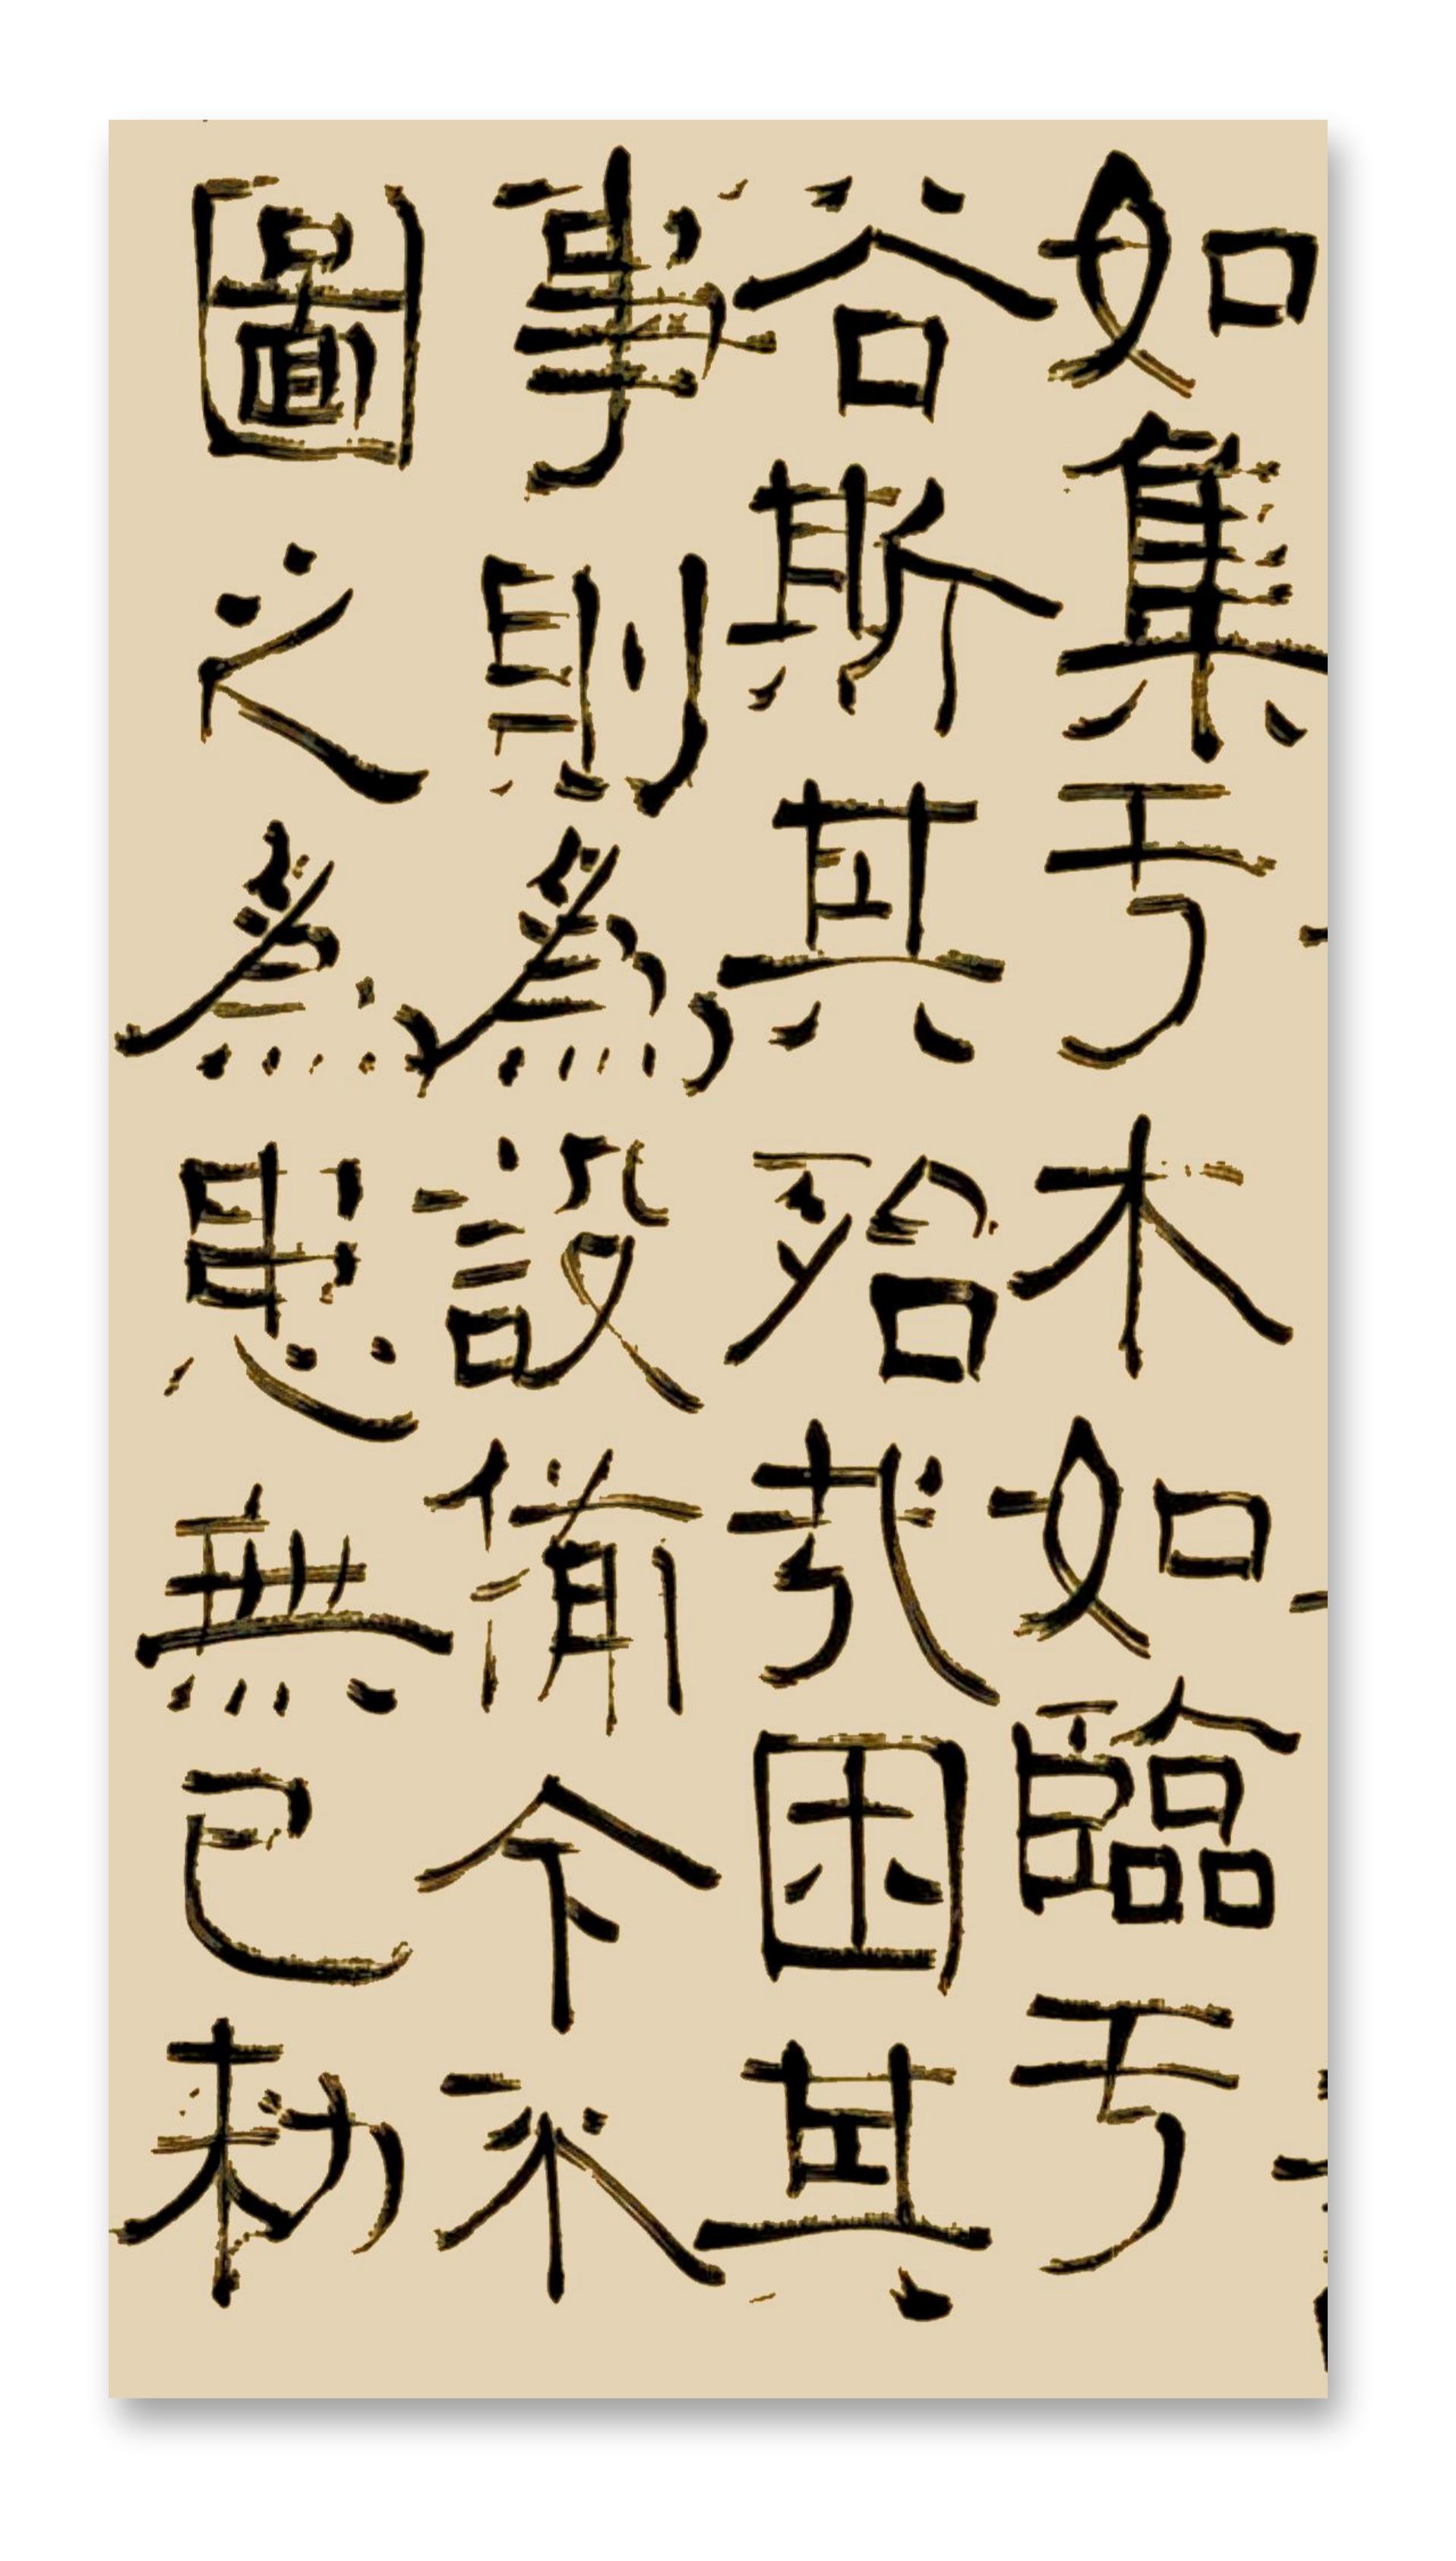 如集于木如臨于
谷斯其殆哉困其
事則為設備今不
圖之為患無已勑